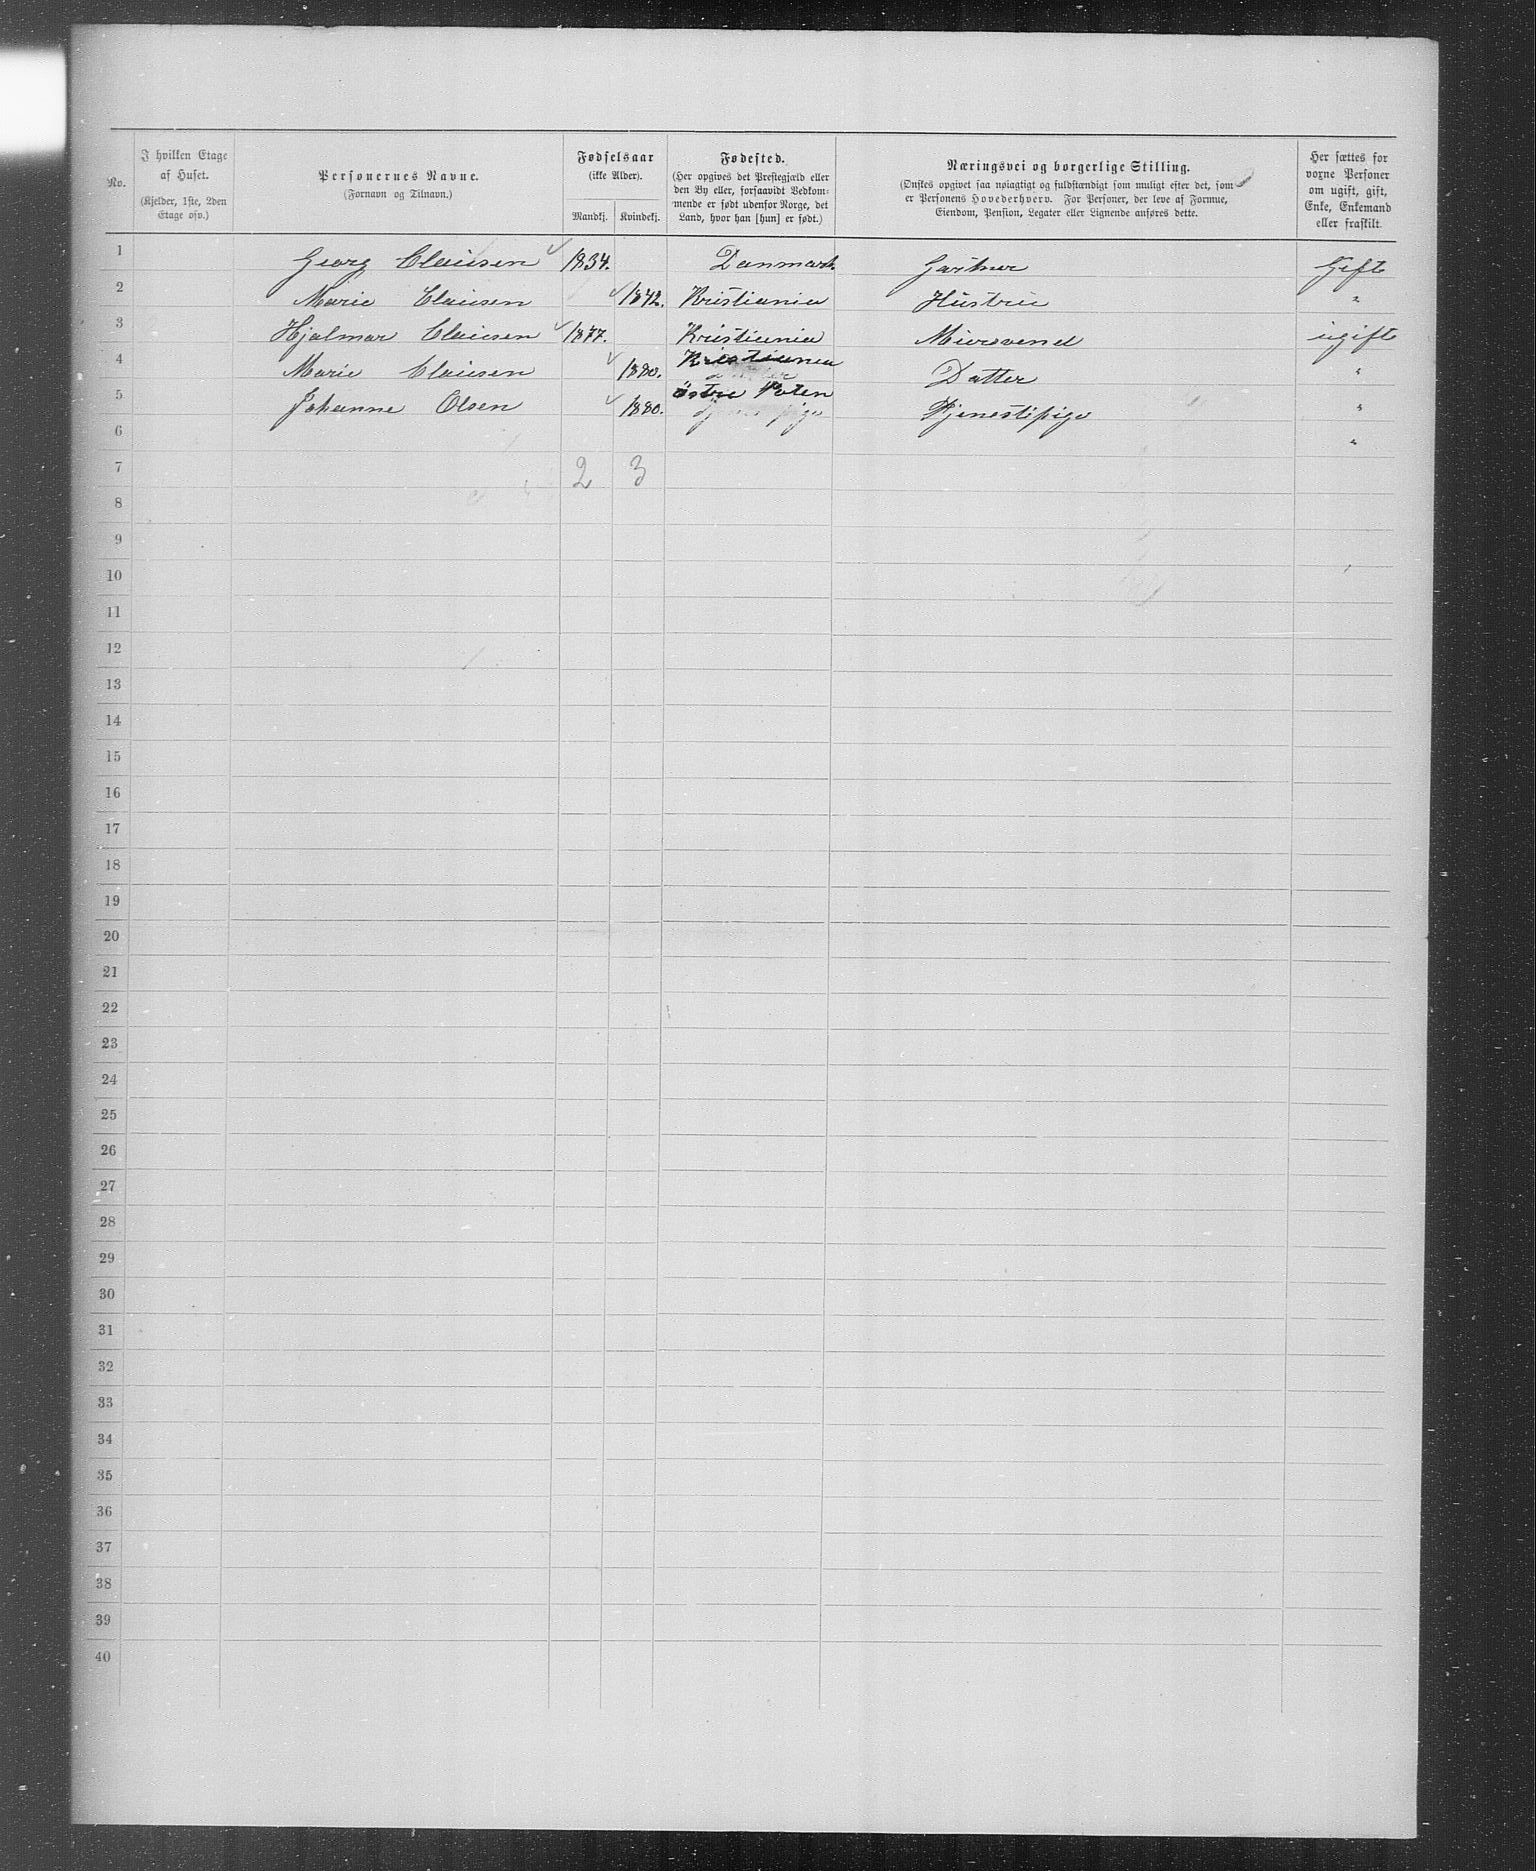 No.
I hvilken Etage af Huset. (Kjelder, 1ste, 2den Etage osv.)
Personernes Navne. (Fornavn og Tilnavn.)
Fødselsaar (ikke Alder). Mandkj. Kvindekj.
Fødested. (Her opgives det Prestegjæld eller den By eller, forsaavidt Vedkommende er født udenfor Norge, det Land, hvor han [hun] er født.)
Næringsvei og borgerlige Stilling. (Ønskes opgivet saa nøiagtigt og fuldstændigt som muligt efter det, som er Personens Hovederhverv. For Personer, der leve af Formue, Eiendom, Pension, Legater eller Lignende anføres dette.
Her sættes for voxne Personer om ugift, gift, Enke, Enkemand eller fraskilt.
1 Georg Clausen 1834. Danmark. Gartner Gift
2 Marie Clausen 1842. Kristiania Hustru "
3 Hjalmar Clausen 1877. Kristiania Mursvend ugift
4 Marie Clausen 1880. Kristiania Datter "
5 Johanne Olsen 1880. Østre Toten Tjenestepige "
6 "
7 2 3
8
9
10
11
12
13
14
15
16
17
18
19
20
21
22
23
24
25
26
27
28
29
30
31
32
33
34
35
36
37
38
39
40